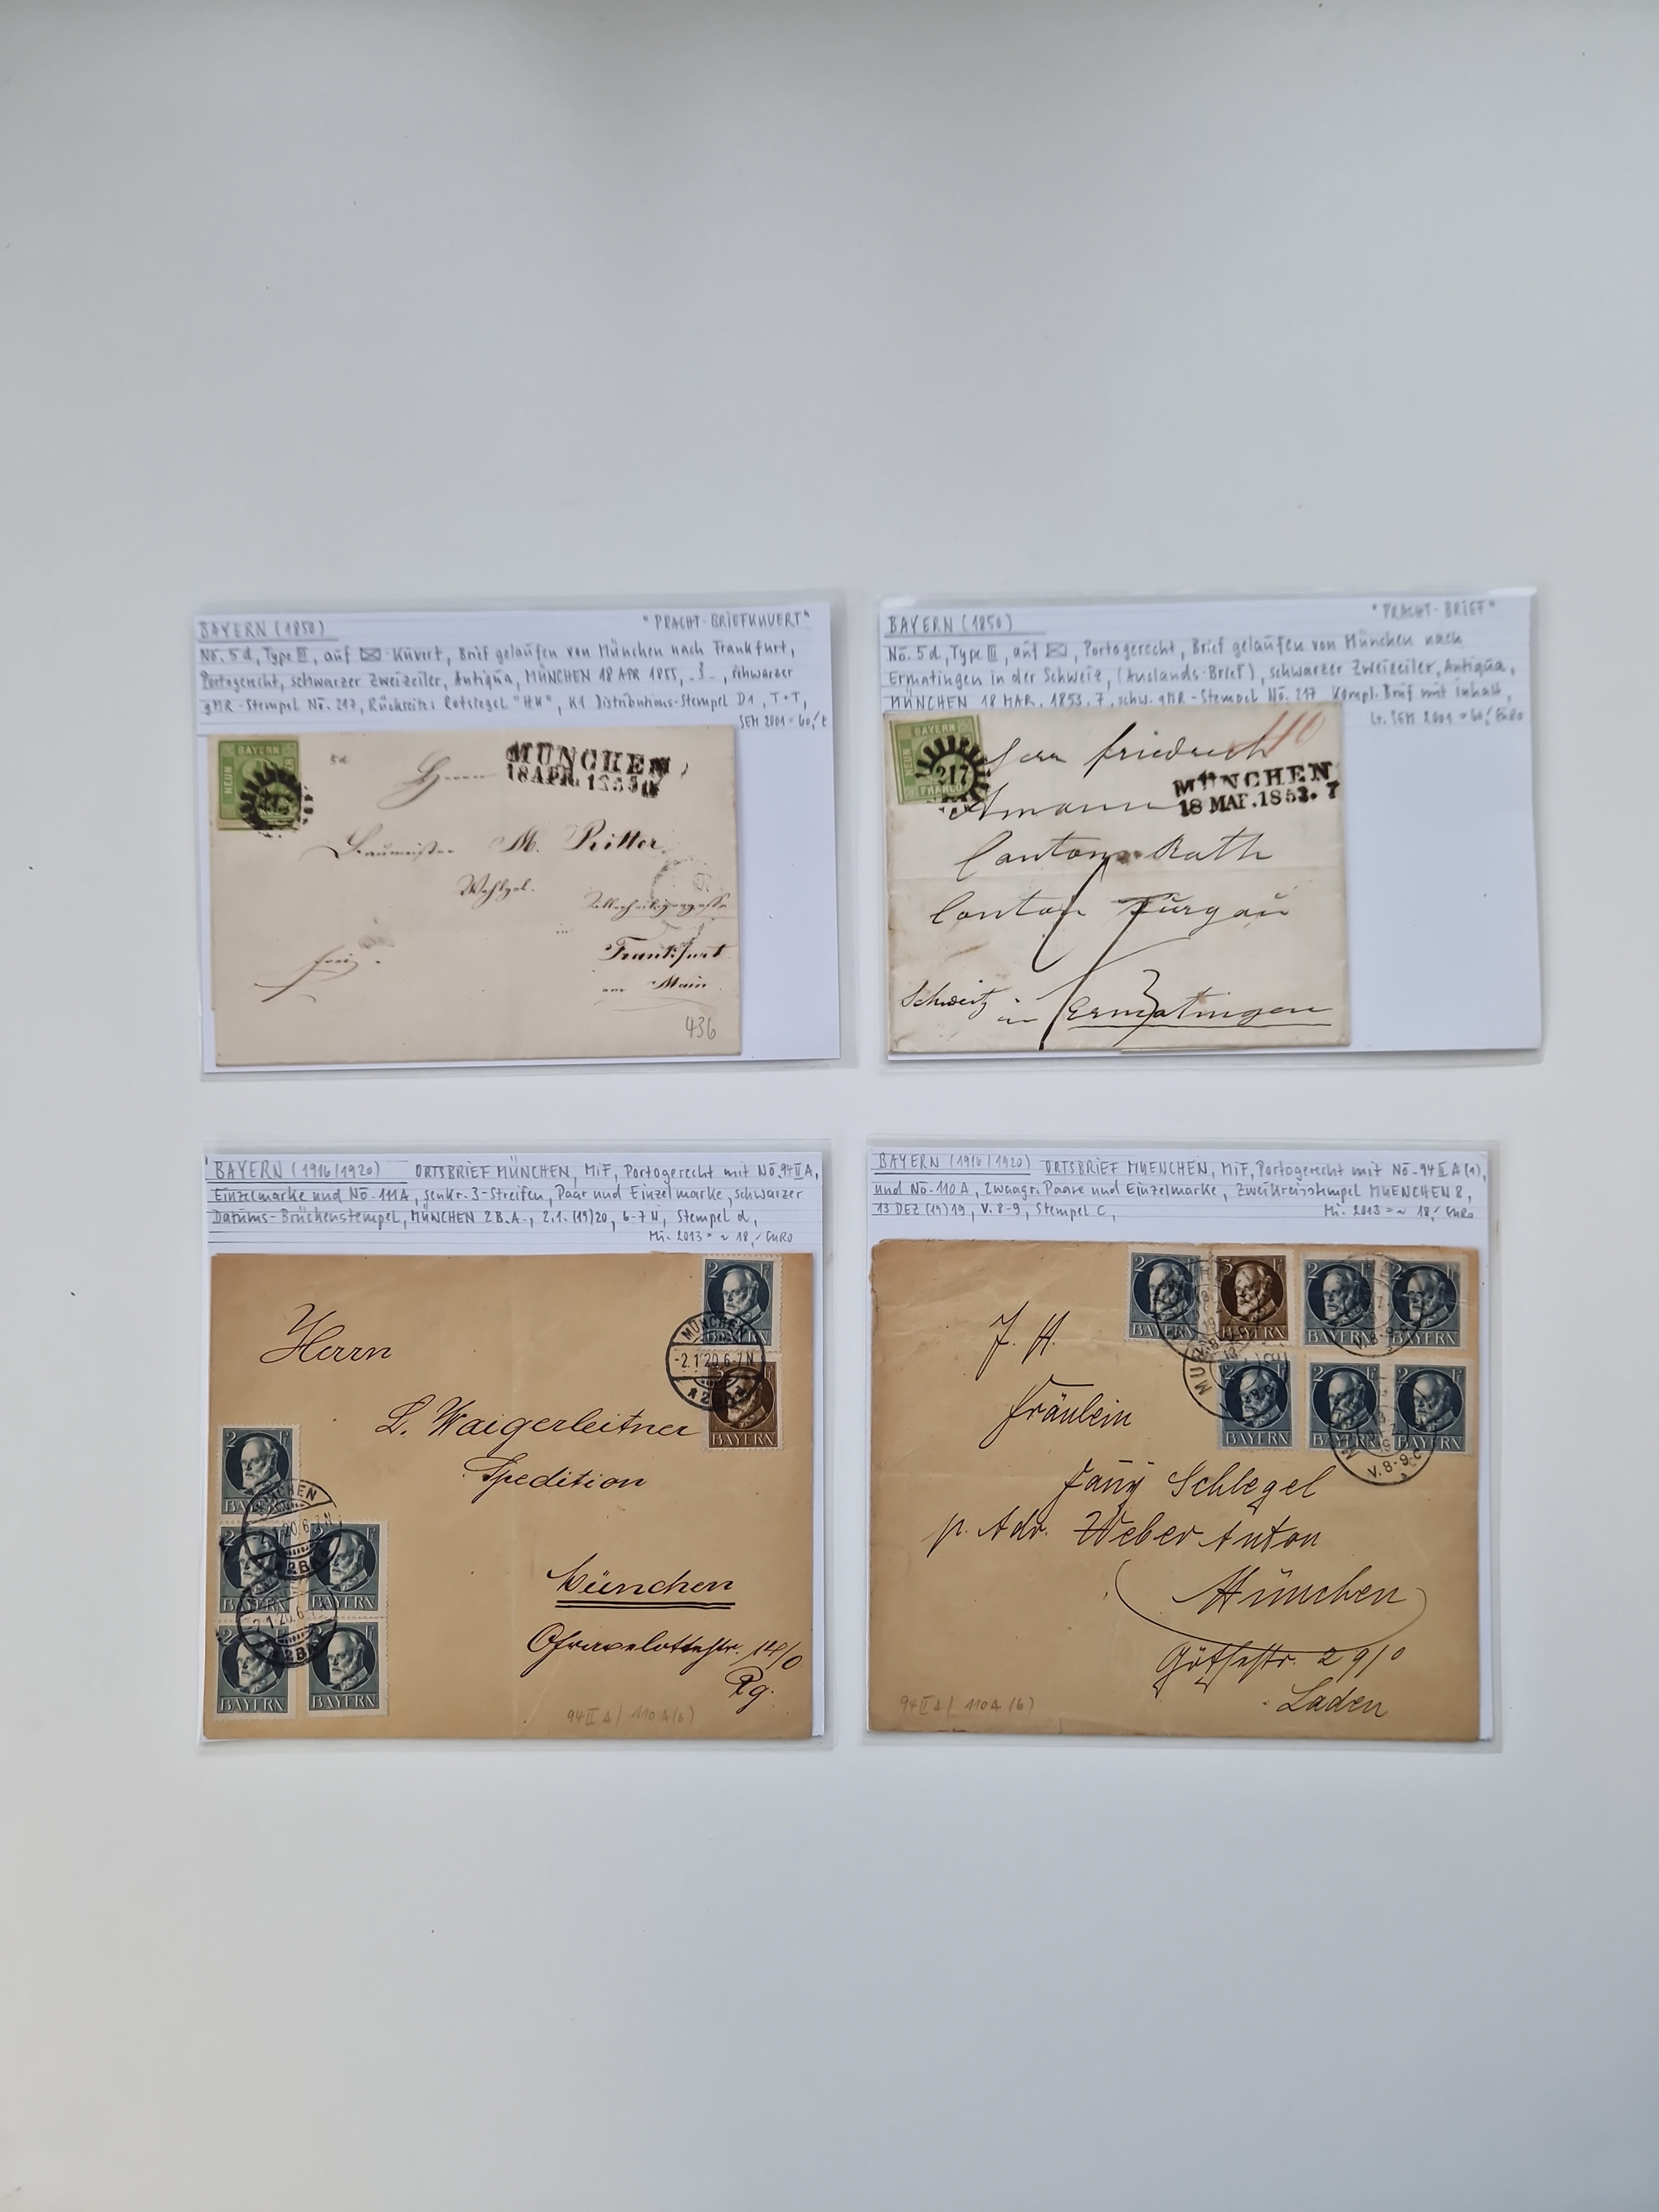 BAYERN (1850)
"PRACHT-BRIEFKUVERT"
No. 5d, Type III, auf Kuvert, Brief gelaufen von München nach Frankfurt,
Portogerecht, schwarzer Zweizeiler, Antiqua, MÜNCHEN 18 APR 1855, schwarzer
gMR-Stempel No. 217, Rückseite: Rotsiegel "HK", K1 Distributions-Stempel D1, T+T,
SEM 2001 = 60,- €
BAYERN
NEUN
5d
Herrn
MÜNCHEN
18 APR. 1855
Baumeister M. Ritter
Wohlgeb.
Allerheiligengasse
in
Frankfurt
am Main
frei
436
BAYERN (1850)
"PRACHT-BRIEF"
No. 5d, Type III, auf, Portogerecht, Brief gelaufen von München nach
Ermatingen in der Schweiz, (Auslands-Brief), schwarzer Zweizeiler, Antiqua,
MÜNCHEN 18 MAR. 1853. 7, schw. gMR-Stempel No. 217, Kompl. Brief mit Inhalt,
Lt. SEM 2001 = 60,- EURO
BAYERN
NEUN
FRANCO
217
Herr friedrich
MÜNCHEN
18 MAR. 1853. 7
Amann
Canton Rath
Canton Turgau
Schweitz in Ermatingen
BAYERN (1916/1920) ORTSBRIEF MÜNCHEN, MiF, Portogerecht mit No. 94 II A,
Einzelmarke und No. 111A, senkr. 3-Streifen, Paar und Einzelmarke, schwarzer
Datums-Brückenstempel, MÜNCHEN 2 B.A., 2.1.(19)20, 6-7 N, Stempel d,
Mi. 2013 = ~ 18,- EURO
2 Pf
BAYERN
MÜNCHEN
-2.1.20.6-7N
BAYERN
Herrn
L. Waigerleitner
Spedition
München
14/0
Rg.
2
BAYERN
MÜNCHEN
2.1.20.6-7N
2B
2
BAYERN
BAYERN
2.1.20.6-7
2B
2
BAYERN
2
BAYERN
94 II A / 110 A (6)
BAYERN (1916/1920) ORTSBRIEF MUENCHEN, MiF, Portogerecht mit No. 94 II A (1),
und No. 110 A, 2 waagr. Paare und Einzelmarke, Zweikreisstempel MUENCHEN 8,
13 DEZ (19)19, V. 8-9, Stempel C,
Mi. 2013 = ~ 18,- EURO
2
BAYERN
BAYERN
2
BAYERN
2
BAYERN
2
BAYERN
2
BAYERN
2
BAYERN
V.8-9.C
F. H.
Fräulein
Fany Schlegel
p. Adr. Weber Anton
München
Göthestr. 29/0
Laden
94 II A / 110 A (6)